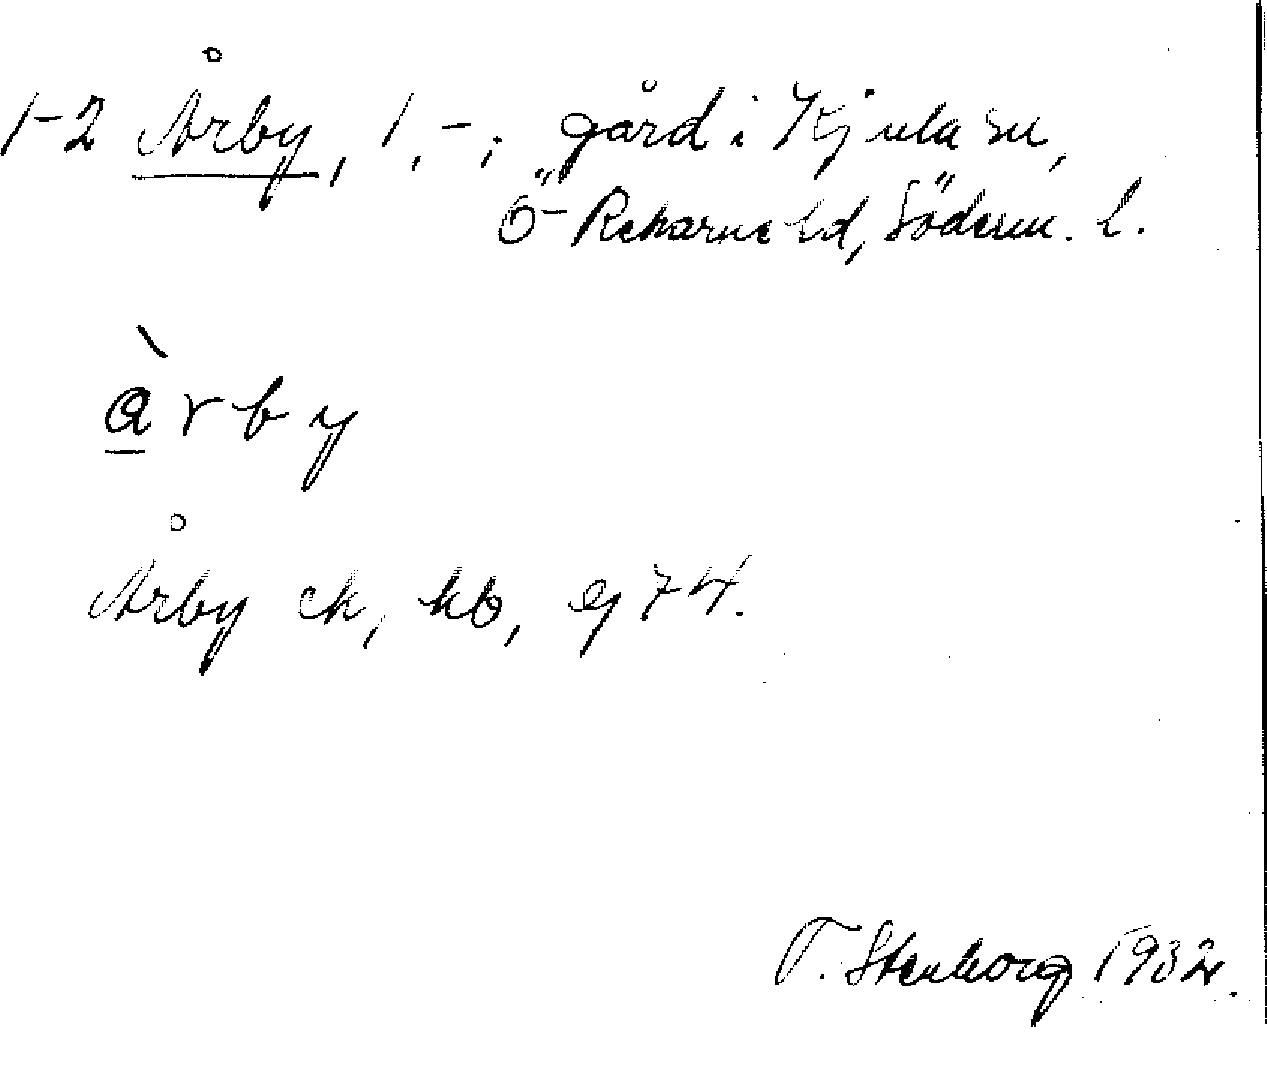 1-2 Årby, 1, -; gård i Kjula sn,
Ö-Rekarne hd, Söderm. l.
àrby
Årby ek, kb, ej 74.
T. Stenborg 1932.